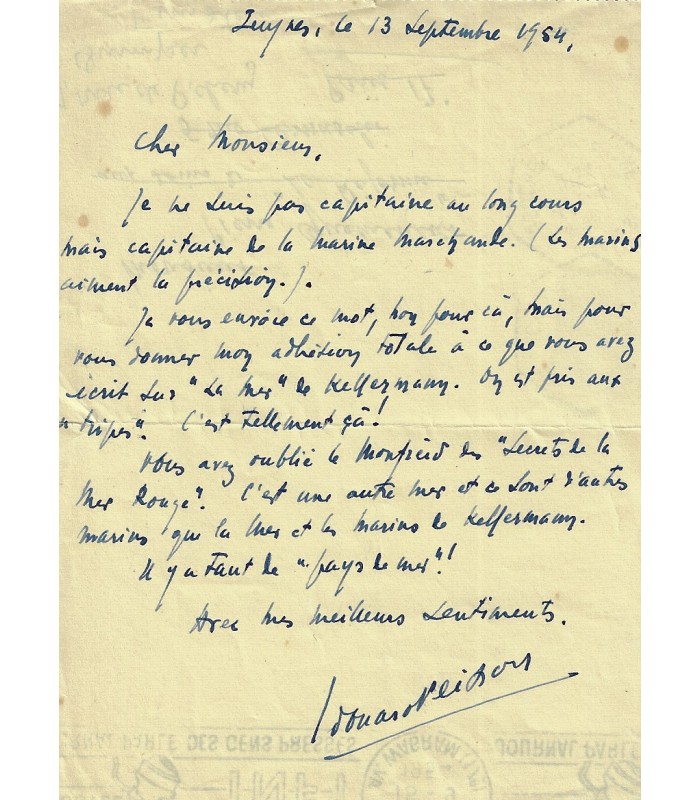 le 13 Septembre 1954,
Cher Monsieur,
Je ne suis pas capitaine au long cours
mais capitaine de la marine marchande. (Les marins
aiment la précision.).
Je vous envoie ce mot, non pour çà, mais pour
vous donner mon adhésion totale à ce que vous avez
écrit sur "La Mer" de Kellermann. On est pris aux
"tripes". C'est tellement çà!
Vous avez oublié le Monfreid des "Secrets de la
Mer Rouge". C'est une autre mer et ce sont d'autres
marins que la mer et les marins de Kellermann.
Il y a tant de "pays de mer"!
Avec mes meilleurs sentiments.
Edouard Peisson
JOURNAL PARLÉ DES GENS PRESSÉS
JOURNAL PARLÉ
AV. WAGRAM